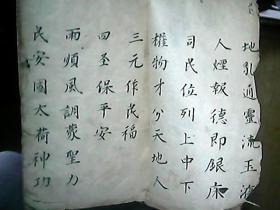 地孔通靈流玉液
人煙報德即銀床
司民位列上中下
權物才分天地人
三元作民福
四至保平安
雨順風調蒙聖力
民安國太荷神功